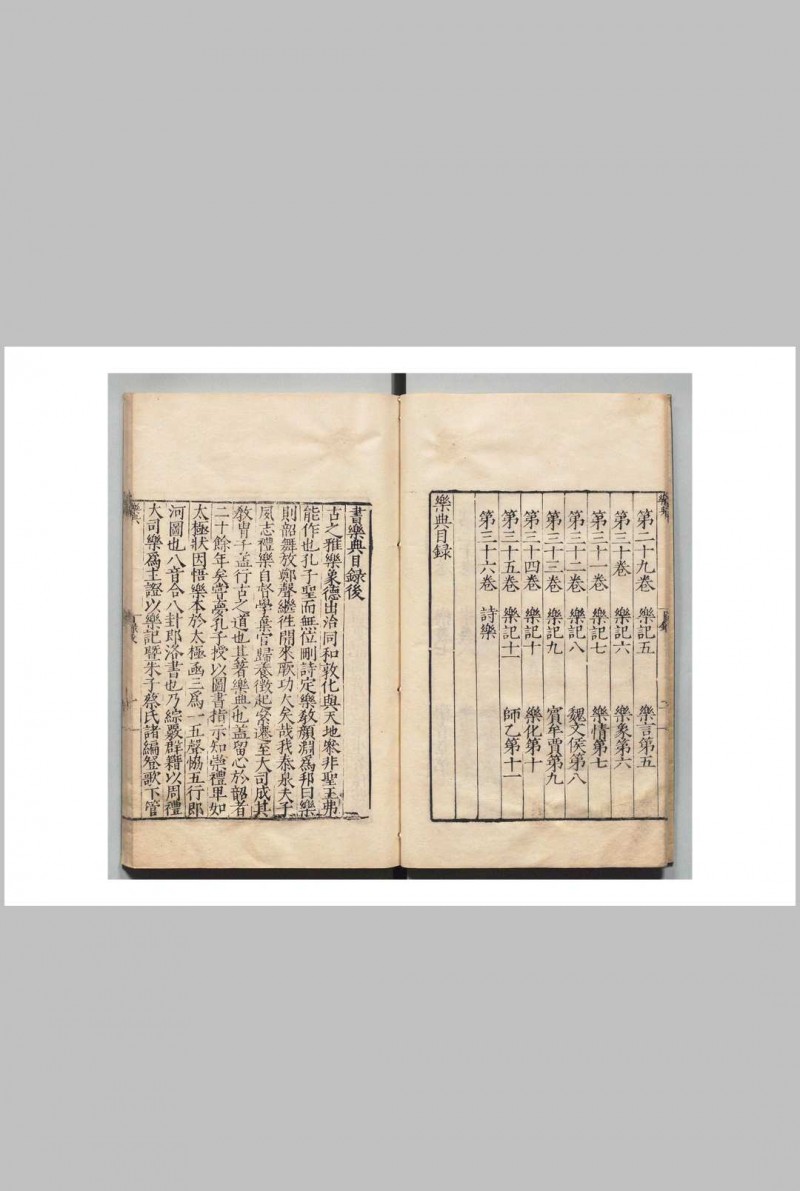 第二十九卷　樂記五　樂言第五
第三十卷　樂記六　樂象第六
第三十一卷　樂記七　樂情第七
第三十二卷　樂記八　魏文侯第八
第三十三卷　樂記九　賓牟賈第九
第三十四卷　樂記十　樂化第十
第三十五卷　樂記十一　師乙第十一
第三十六卷　詩樂
樂典目録
書樂典目録後
古之雅樂象德出治同和敦化與天地參非聖王弗
能作也孔子聖而無位刪詩定樂教顏淵為邦曰樂
則韶舞放鄭聲繼徃開來厥功大矣哉我泰泉夫子
夙志禮樂自督學棄官歸養徴起家遷至大司成其
敎冑子盖行古之道也其著樂典也盖留心於韶者
二十餘年矣嘗夢孔子授以圖書指示知崇禮卑如
太極狀因悟樂本於太極函三為一五聲恊五行即
河圖也八音合八卦即洛書也乃綜覈群籍以周禮
大司樂爲主證以樂記曁朱子蔡氏諸編登歌下管